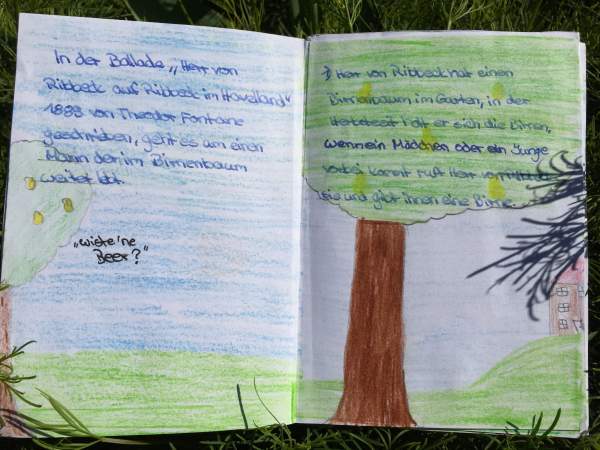 In der Ballade „Herr von
Ribbeck auf Ribbeck im Havelland"
1889 von Theodor Fontane
geschrieben, geht es um einen
Mann der im Birnenbaum
weiter lebt.
„wiste 'ne
Beer?"
Herr von Ribbeck hat einen
Birnenbaum im Garten, in der
Herbstzeit holt er sich die Birnen,
wenn ein Mädchen oder ein Junge
vorbei kommt ruft Herr von
und gibt ihnen eine Birne.